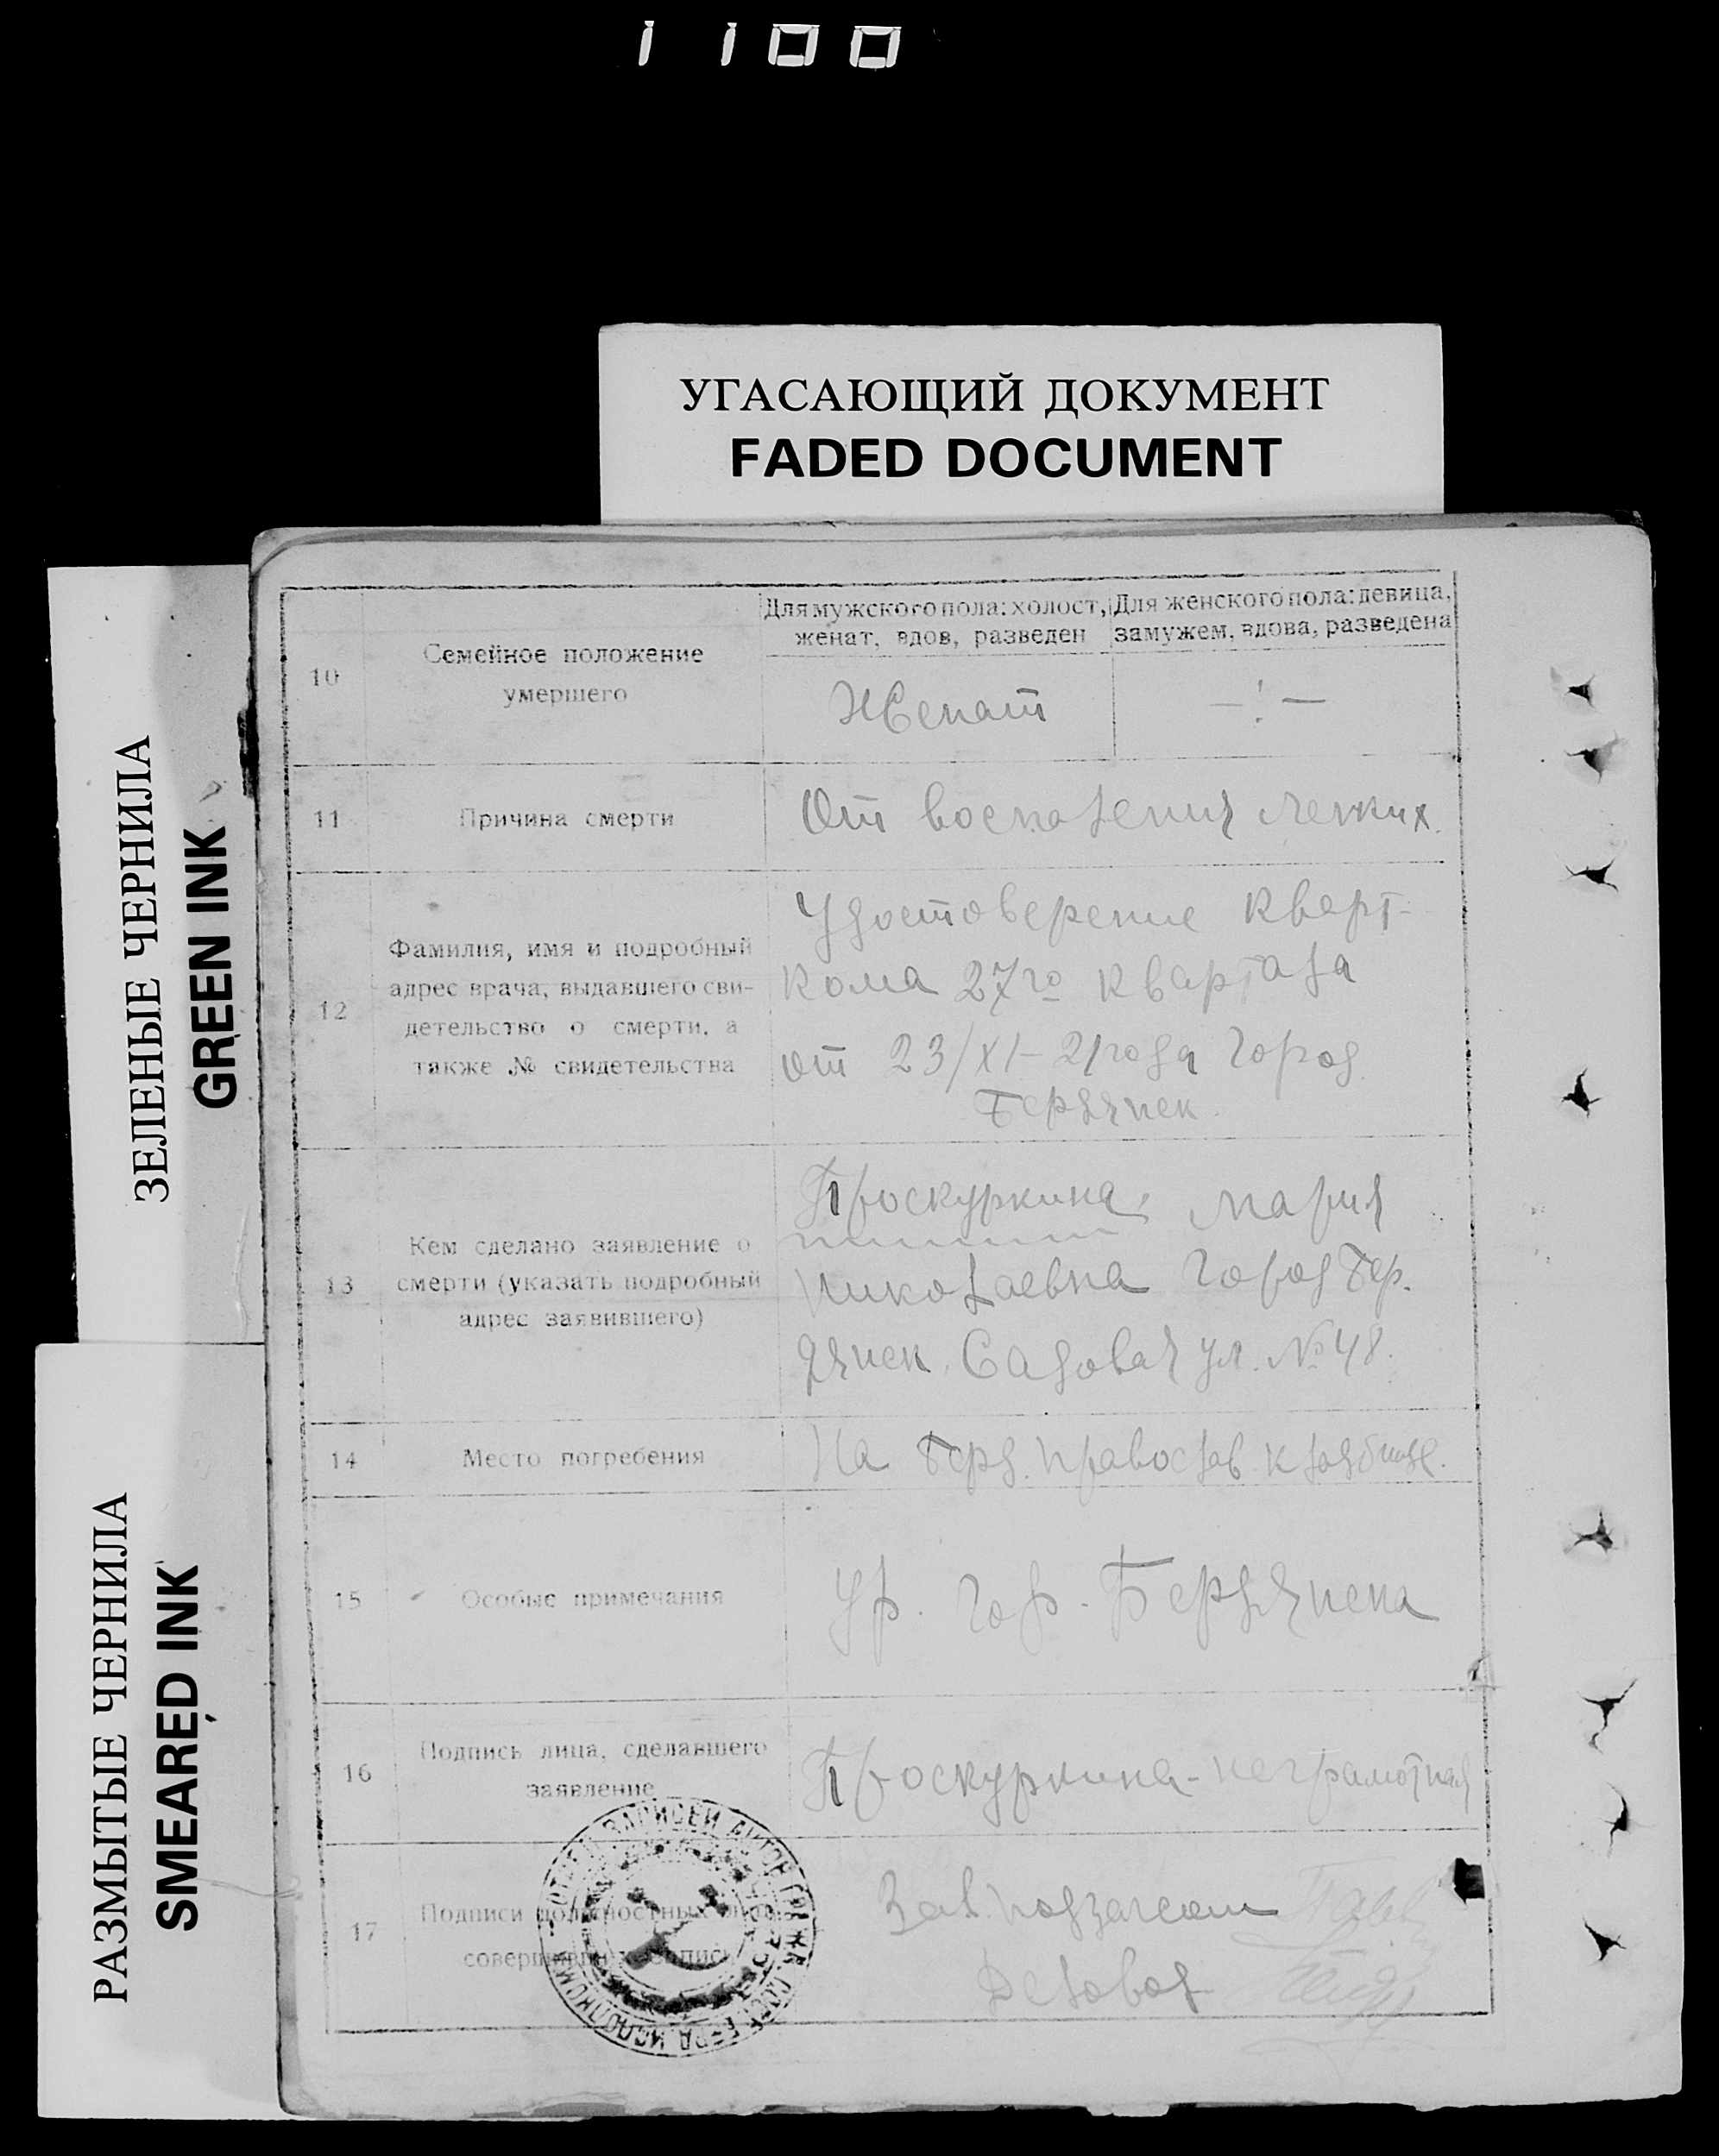 1100
УГАСАЮЩИЙ ДОКУМЕНТ
FADED DOCUMENT
ЗЕЛЕНЫЕ ЧЕРНИЛА
GREEN INK
РАЗМЫТЫЕ ЧЕРНИЛА
SMEARED INK
10
Семейное положение
умершего
Для мужского пола: холост,
женат, вдов, разведен
Для женского пола: девица,
замужем, вдова, разведена
Женат
11
Причина смерти
От воспаления легких.
12
Фамилия, имя и подробный
адрес врача, выдавшего сви-
детельство о смерти, а
также № свидетельства
Удостоверение Кварт-
кома 27го квартала
от 23/XI-21 года город
Бердянск.
13
Кем сделано заявление о
смерти (указать подробный
адрес заявившего)
Проскуркина Мария
Николаевна город Бер.
дянск. Садовая ул. № 48.
14
Место погребения
На Берд. православ. кладбище.
15
Особые примечания
Ур. гор. Бердянска
16
Подпись лица, сделавшего
заявление
Проскуркина-неграмотная
17
Подписи должностных лиц,
совершивших запись
Зав. подзагсом
Деловод